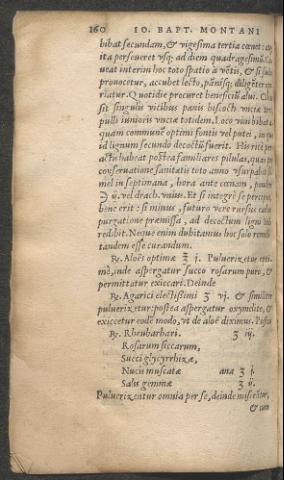 160 IO. BAPT. MONTANI
bibat secundam, & vigesima tertia cœnet: &
ita perseueret usq; ad diem quadragesimũ. Ca
ueat interim hoc toto spatio à
prouocetur, accubet lecto, pãnisq;
riatur. Quotidie procuret beneficiũ alui.
sit singulis vicibus panis biscocti vnciæ
pulli iunioris vnciæ totidem. Loco vini bibat
quam communẽ optimi fontis vel putei, in
id lignum secundo decoctũ fuerit. His ritè per
actis habeat postea familiares pilulas, quas
conseruatione sanitatis toto anno vsurpabit
mel in septimana, hora ante cœnam, pondere
℈ ij. vel drach. vnius. Et si integrè se
bene erit: si minus, futuro vere rursus
purgatione præmissa, ad decoctum ligni
reddibit. Neque enim dubitamus hoc solo
tandem esse curandum.
℞. Aloës optimæ ℥ j. Puluerizetur opti-
mè, inde aspergatur succo rosarum puro, &
permittatur exiccari. Deinde
℞. Agarici electissimi ʒ vj. & similiter
puluerizetur: postea aspergatur oxymelite, &
exiccetur eodẽ modo, vt de aloë diximus.
℞. Rheubarbari. ʒ iij.
Rosarum siccarum,
Succi glycyrrhizæ,
Nucis muscatæ ana ʒ j.
Salis gemmæ ʒ ij.
Puluerizentur omnia per se, deinde misceãtur,
& cum